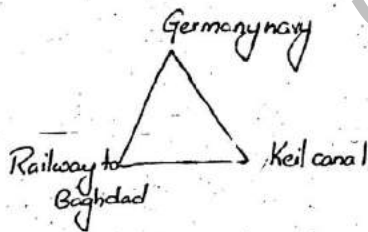 Germany navy
Railway to
Baghdad
Keil canal